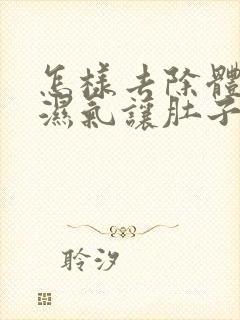 怎樣去除體
濕氣讓肚子
聆汐